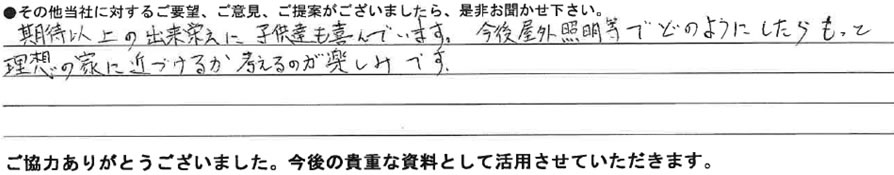 ●その他当社に対するご要望、ご意見、ご提案がございましたら、是非お聞かせ下さい。
期待以上の出来栄えに子供達も喜んでいます。今後屋外照明等でどのようにしたらもって
理想の家に近づけるか考えるのが楽しみです。
ご協力ありがとうございました。今後の貴重な資料として活用させていただきます。